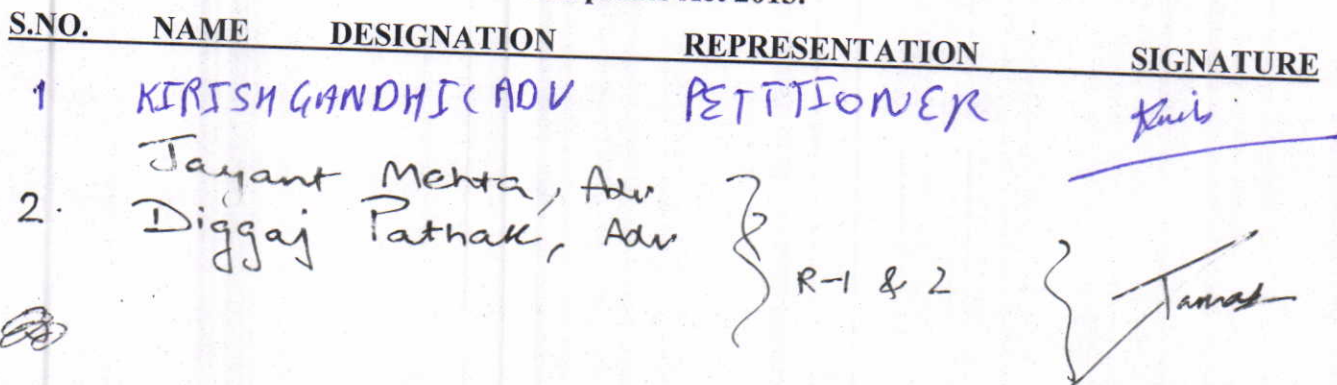 Act 2013.
S.NO. NAME DESIGNATION REPRESENTATION SIGNATURE
1 KIRISH GANDHI ( ADV PETITIONER
Jayant Mehta, Adv
2. Diggaj Pathak, Adv
R-1 & 2